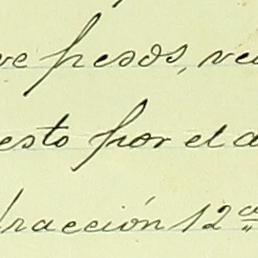 ve pesos, ve
esto por el a
fracción 12ª